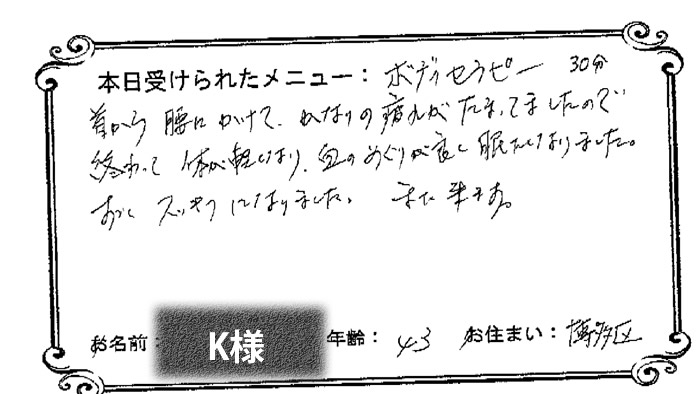 本日受けられたメニュー： ボディセラピー 30分
首から 腰に かけて、かなりの 疲れが たまってましたので
終わって 体が 軽くなり、血の めぐりが 良く 眠たくなりました。
スッキリ になりました。 また 来ます。
お名前： K様 年齢： 43 お住まい： 博多区